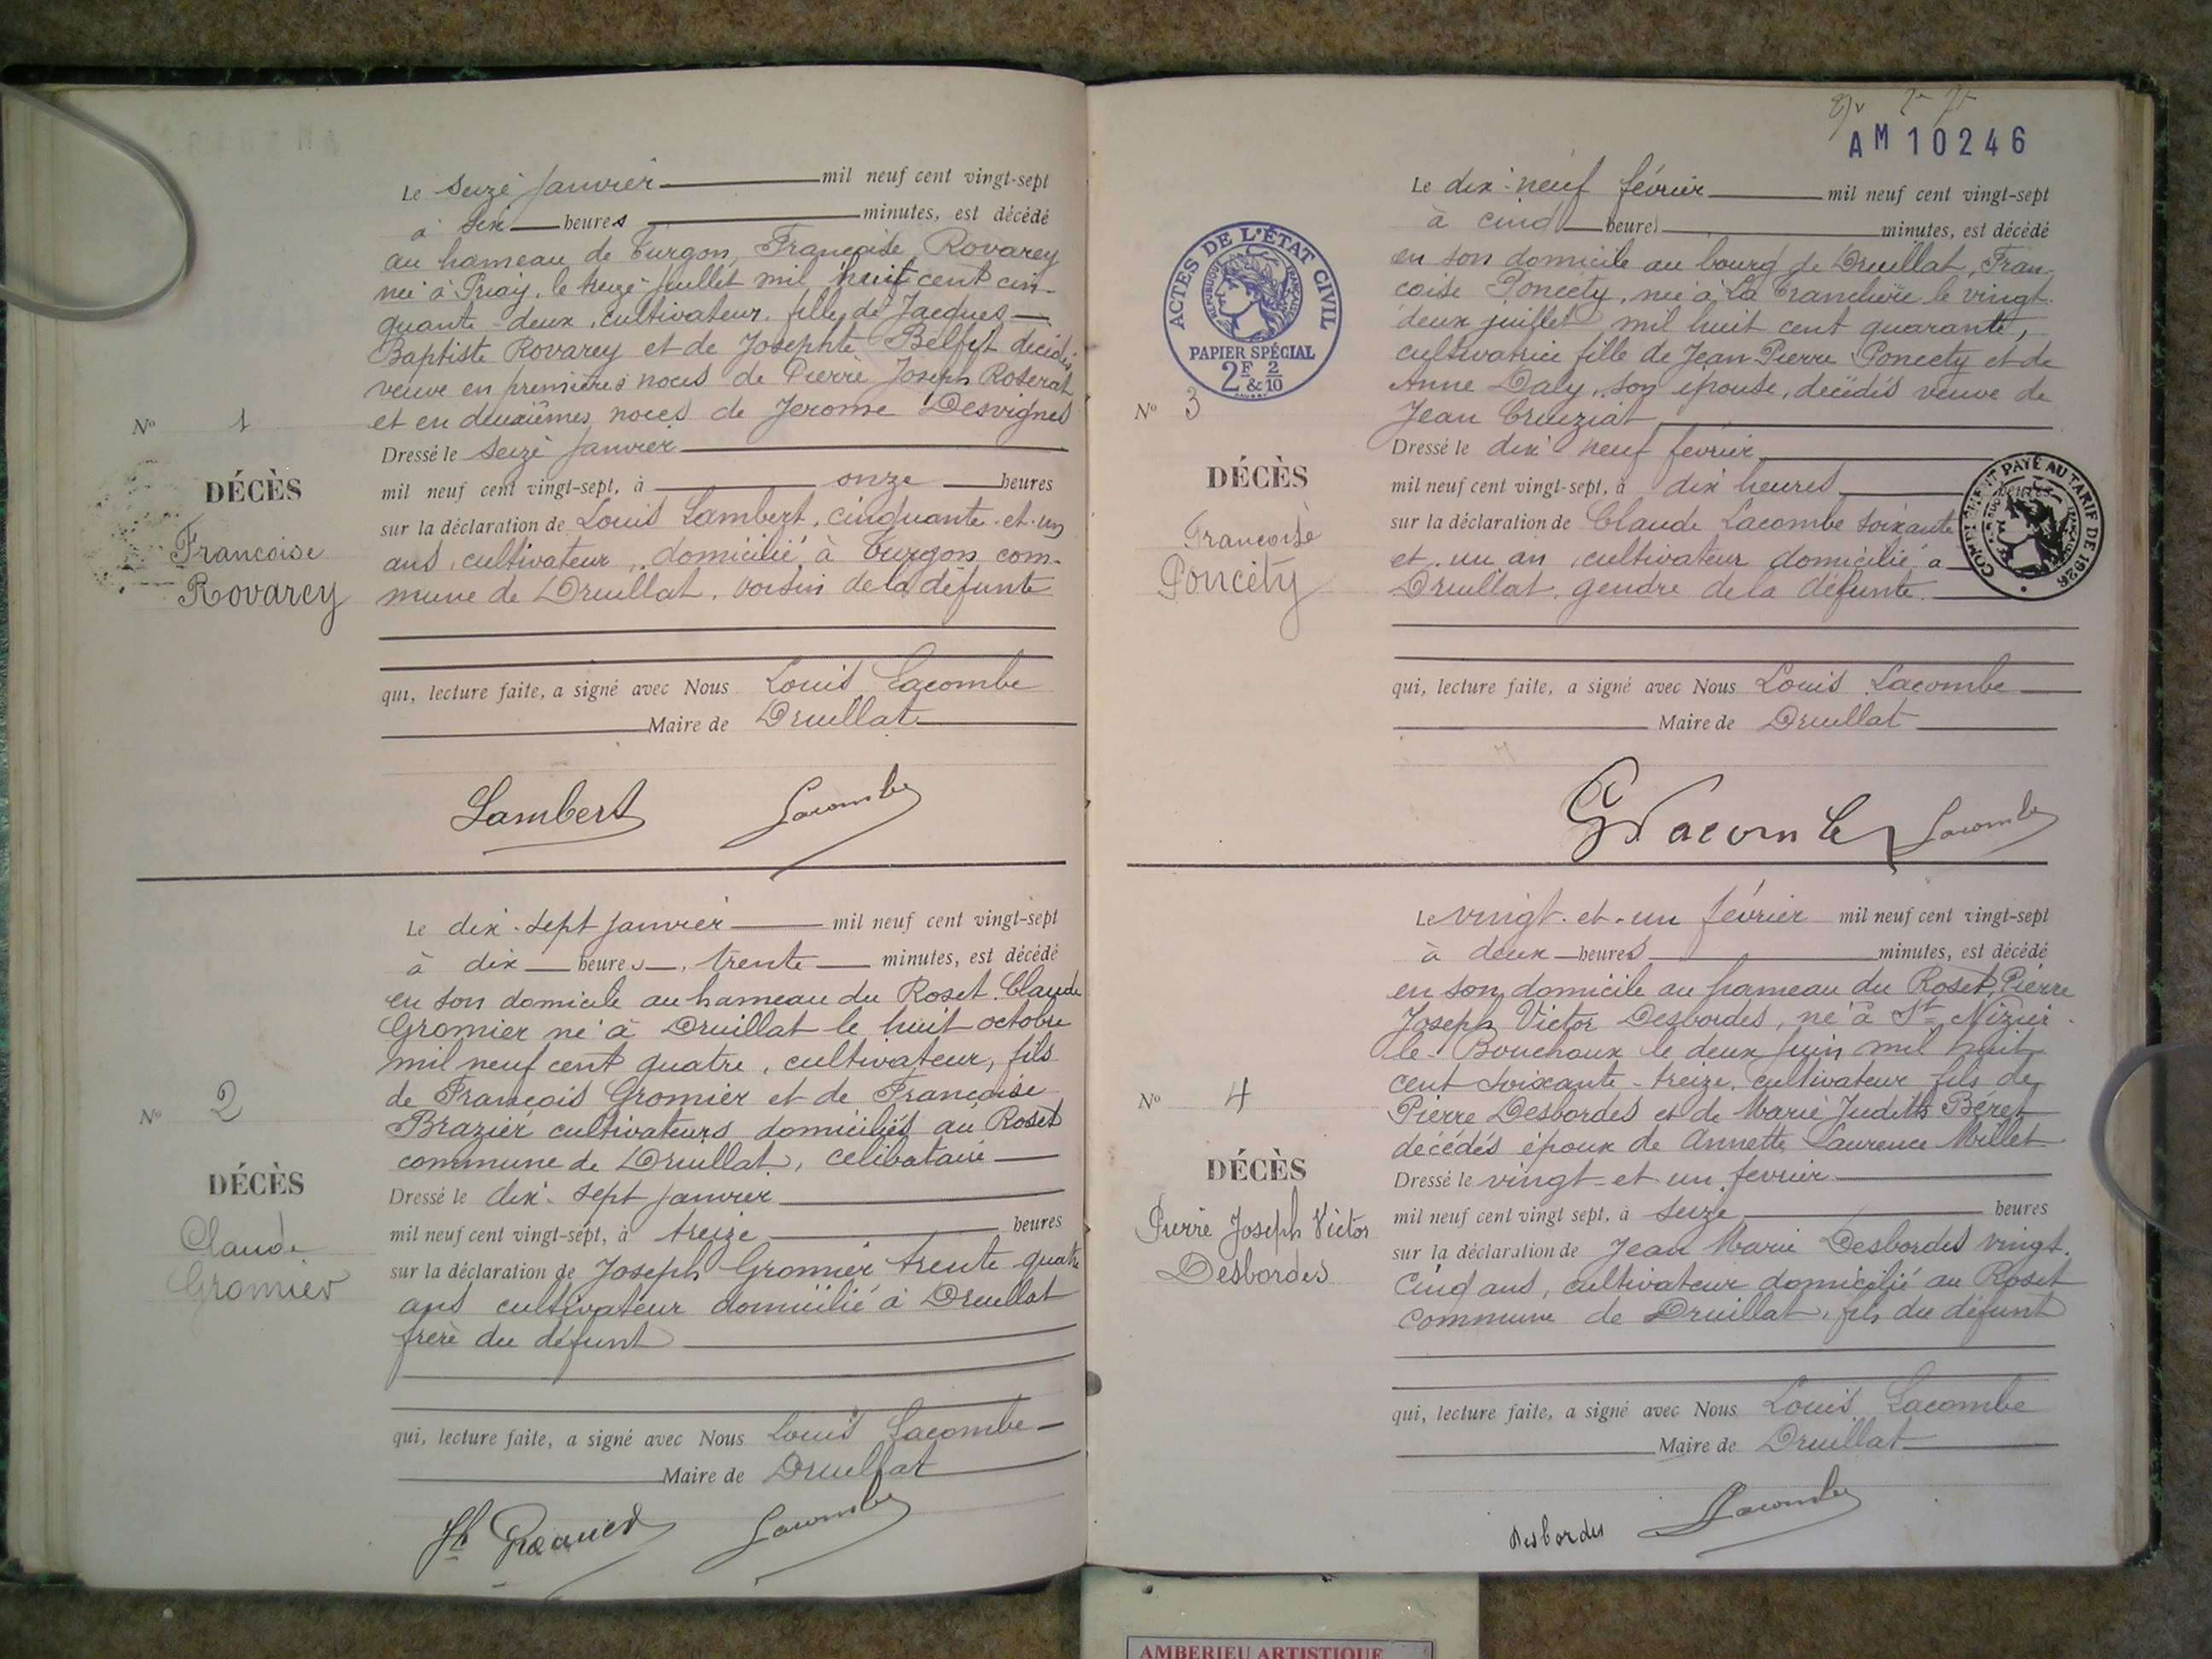 Le seize janvier mil neuf cent vingt-sept
à six heures minutes, est décédé
au hameau de Turgon, Françoise Rovarey
née à Priay, le treize juillet mil huit cent cin-
quante-deux, cultivateur, fille de Jacques
Baptiste Rovarey et de Josephte décédés,
veuve en premières noces de Pierre Joseph Roserat
et en deuxièmes noces de Jerome Desvignes
Nº 1
DÉCÈS
Françoise
Rovarey
Dressé le seize janvier
mil neuf cent vingt-sept, à onze heures
sur la déclaration de Louis Lambert, cinquante-et-un
ans, cultivateur, domicilié à Turgon com-
mune de Druillat, voisin de la défunte
qui, lecture faite, a signé avec Nous Louis Lacombe
Maire de Druillat
Lambert Lacombe
Le dix-sept janvier mil neuf cent vingt-sept
à dix heures, trente minutes, est décédé
en son domicile au hameau du Roset. Claude
Gromier né à Druillat le huit octobre
mil neuf cent quatre, cultivateur, fils
de François Gromier et de Françoise
Brazier cultivateurs domiciliés au Roset
commune de Druillat, célibataire
Nº 2
DÉCÈS
Claude
Gromier
Dressé le dix-sept janvier
mil neuf cent vingt-sept, à treize heures
sur la déclaration de Joseph Gromier trente quatre
ans cultivateur domicilié à Druillat
frère du défunt
qui, lecture faite, a signé avec Nous Louis Lacombe
Maire de Druillat
Jh Gromier Lacombe
AM 10246
Le dix-neuf février mil neuf cent vingt-sept
à cinq heures minutes, est décédé
en son domicile au bourg de Druillat, Fran-
coise Poncety, née à La Tranclière le vingt-
deux juillet mil huit cent quarante,
cultivatrice fille de Jean-Pierre Poncety et de
Anne Daly, son épouse, décédés veuve de
Jean Creuziat
ACTES DE L'ÉTAT CIVIL
RÉPUBLIQUE FRANÇAISE
PAPIER SPÉCIAL
2F & 2/10
Nº 3
DÉCÈS
Françoise
Poncéty
Dressé le dix-neuf février
mil neuf cent vingt-sept, à dix heures heures
sur la déclaration de Claude Lacombe soixante
et un an, cultivateur domicilié à
Druillat, gendre de la défunte
COMPLÉMENT PAYÉ AU TARIF DE 1926
qui, lecture faite, a signé avec Nous Louis Lacombe
Maire de Druillat
Lacombe Lacombe
Le vingt-et-un février mil neuf cent vingt-sept
à deux heures minutes, est décédé
en son domicile au hameau du Roset, Pierre
Joseph Victor Desbordes, né à St Nizier-
le-Bouchoux le deux juin mil huit
cent soixante-treize, cultivateur fils de
Pierre Desbordes et de Marie Judith Béret
décédés époux de Annette Laurence Millet
Nº 4
DÉCÈS
Pierre Joseph Victor
Desbordes
Dressé le vingt-et-un février
mil neuf cent vingt sept, à seize heures
sur la déclaration de Jean Marie Desbordes vingt-
cinq ans, cultivateur domicilié au Roset
commune de Druillat, fils du défunt
qui, lecture faite, a signé avec Nous Louis Lacombe
Maire de Druillat
Desbordes Lacombe
AMBERIEU ARTISTIQUE